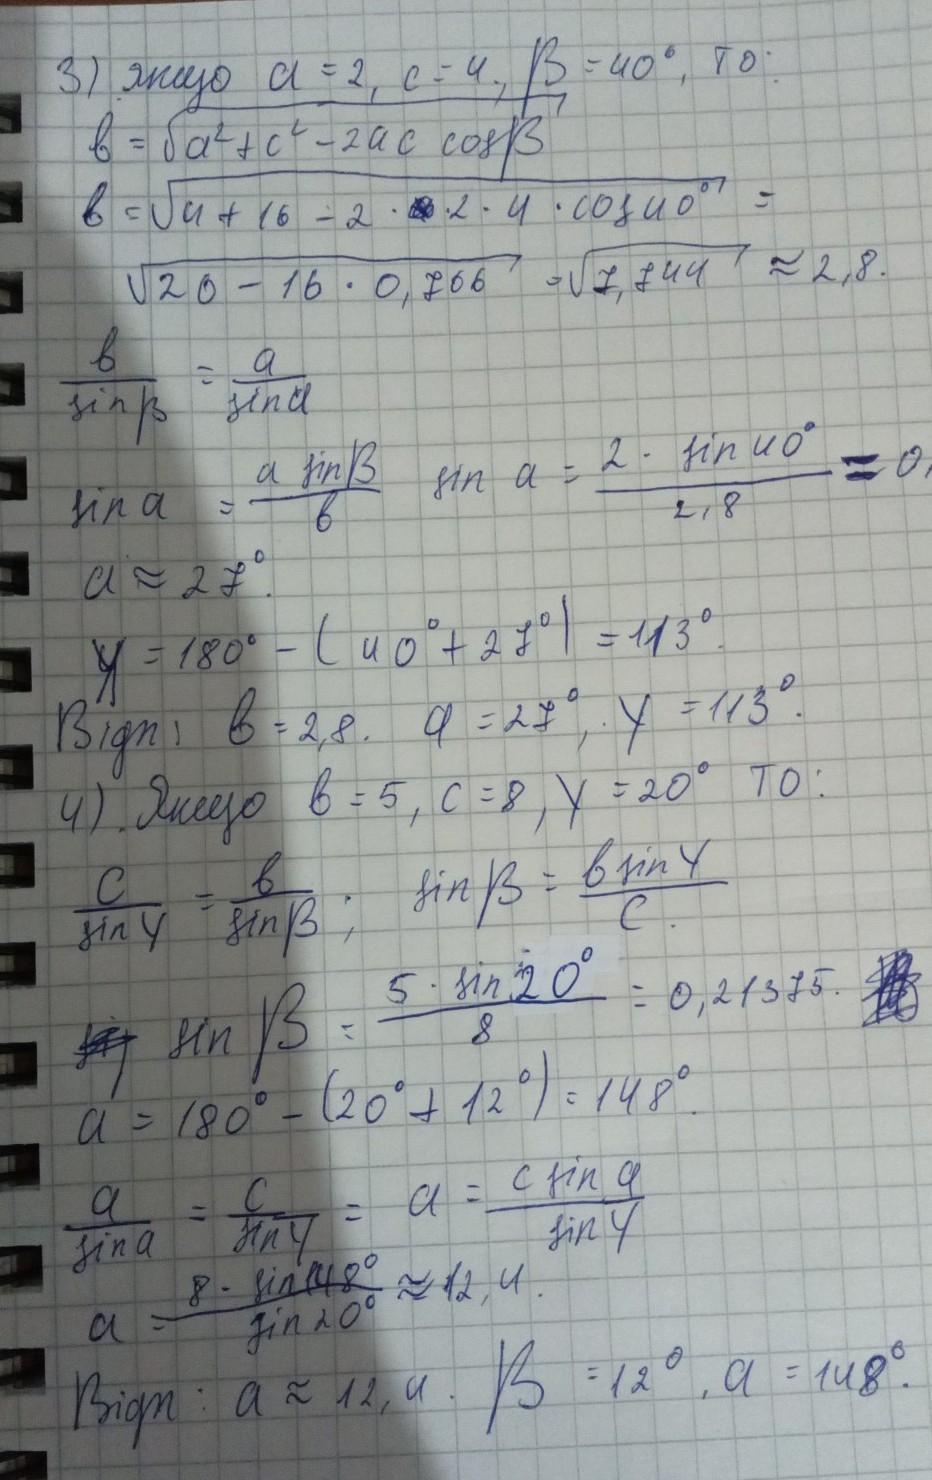 3) Якщо a = 2, c = 4, β = 40°, то:
b = √a² + c² - 2ac cosβ
b = √4 + 16 - 2 · 2 · 4 · cos 40° =
√20 - 16 · 0,766 = √7,744 ≈ 2,8.
b/sinβ = a/sinα
sin α = a sinβ/b sin α = 2 · sin 40°/2,8 = 0,
α ≈ 27°.
γ = 180° - (40° + 27°) = 113°.
Відп: b = 2,8. α = 27°, γ = 113°.
4). Якщо b = 5, c = 8, γ = 20° то:
c/sinγ = b/sinβ; sinβ = b sinγ/c.
sin β = 5 · sin 20°/8 = 0,21375.
α = 180° - (20° + 12°) = 148°.
a/sinα = c/sinγ = a = c sin α/sin γ
a = 8 · sin 148°/sin 20° ≈ 12,4.
Відп: a ≈ 12,4. β = 12°, α = 148°.